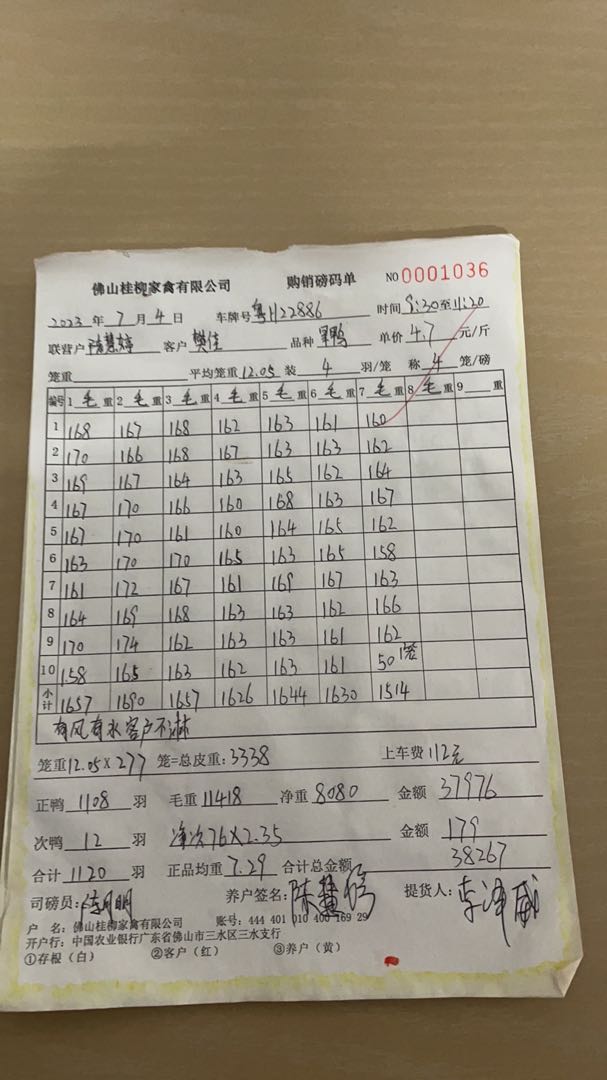 佛山桂柳家禽有限公司 购销磅码单 NO 0001036
2023 年 7 月 4 日 车牌号 粤H22886 时间 9:30 至 11:20
联营户 陈慧婷 客户 樊佳 品种 单价 4.7 元/斤
笼重 平均笼重 12.05 装 4 羽/笼 称 4 笼/磅
编号 1 毛 重 2 毛 重 3 毛 重 4 毛 重 5 毛 重 6 毛 重 7 毛 重 8 毛 重 9 重
1 168 167 168 162 163 161 160
2 170 166 168 167 163 163 162
3 169 167 164 163 165 162 164
4 167 170 166 160 168 163 167
5 167 170 161 160 164 165 162
6 163 170 170 165 163 165 158
7 161 172 167 161 169 167 163
8 164 169 168 163 163 162 166
9 170 174 162 163 163 161 162
10 158 165 163 162 163 161 50 1笼
小计 1657 1690 1657 1626 1644 1630 1514
有风有水客户不淋
笼重 12.05 X 277 笼=总皮重: 3338 上车费 112元
正鸭 1108 羽 毛重 11418 净重 8080 金额 37976
次鸭 12 羽 净次76X2.35 金额 179
合计 1120 羽 正品均重 7.29 合计总金额 38267
司磅员: 养户签名: 陈慧 提货人: 李泽威
户 名: 佛山桂柳家禽有限公司 账号: 444 401 010 400 169 29
开户行: 中国农业银行广东省佛山市三水区三水支行
①存根(白) ②客户(红) ③养户(黄)